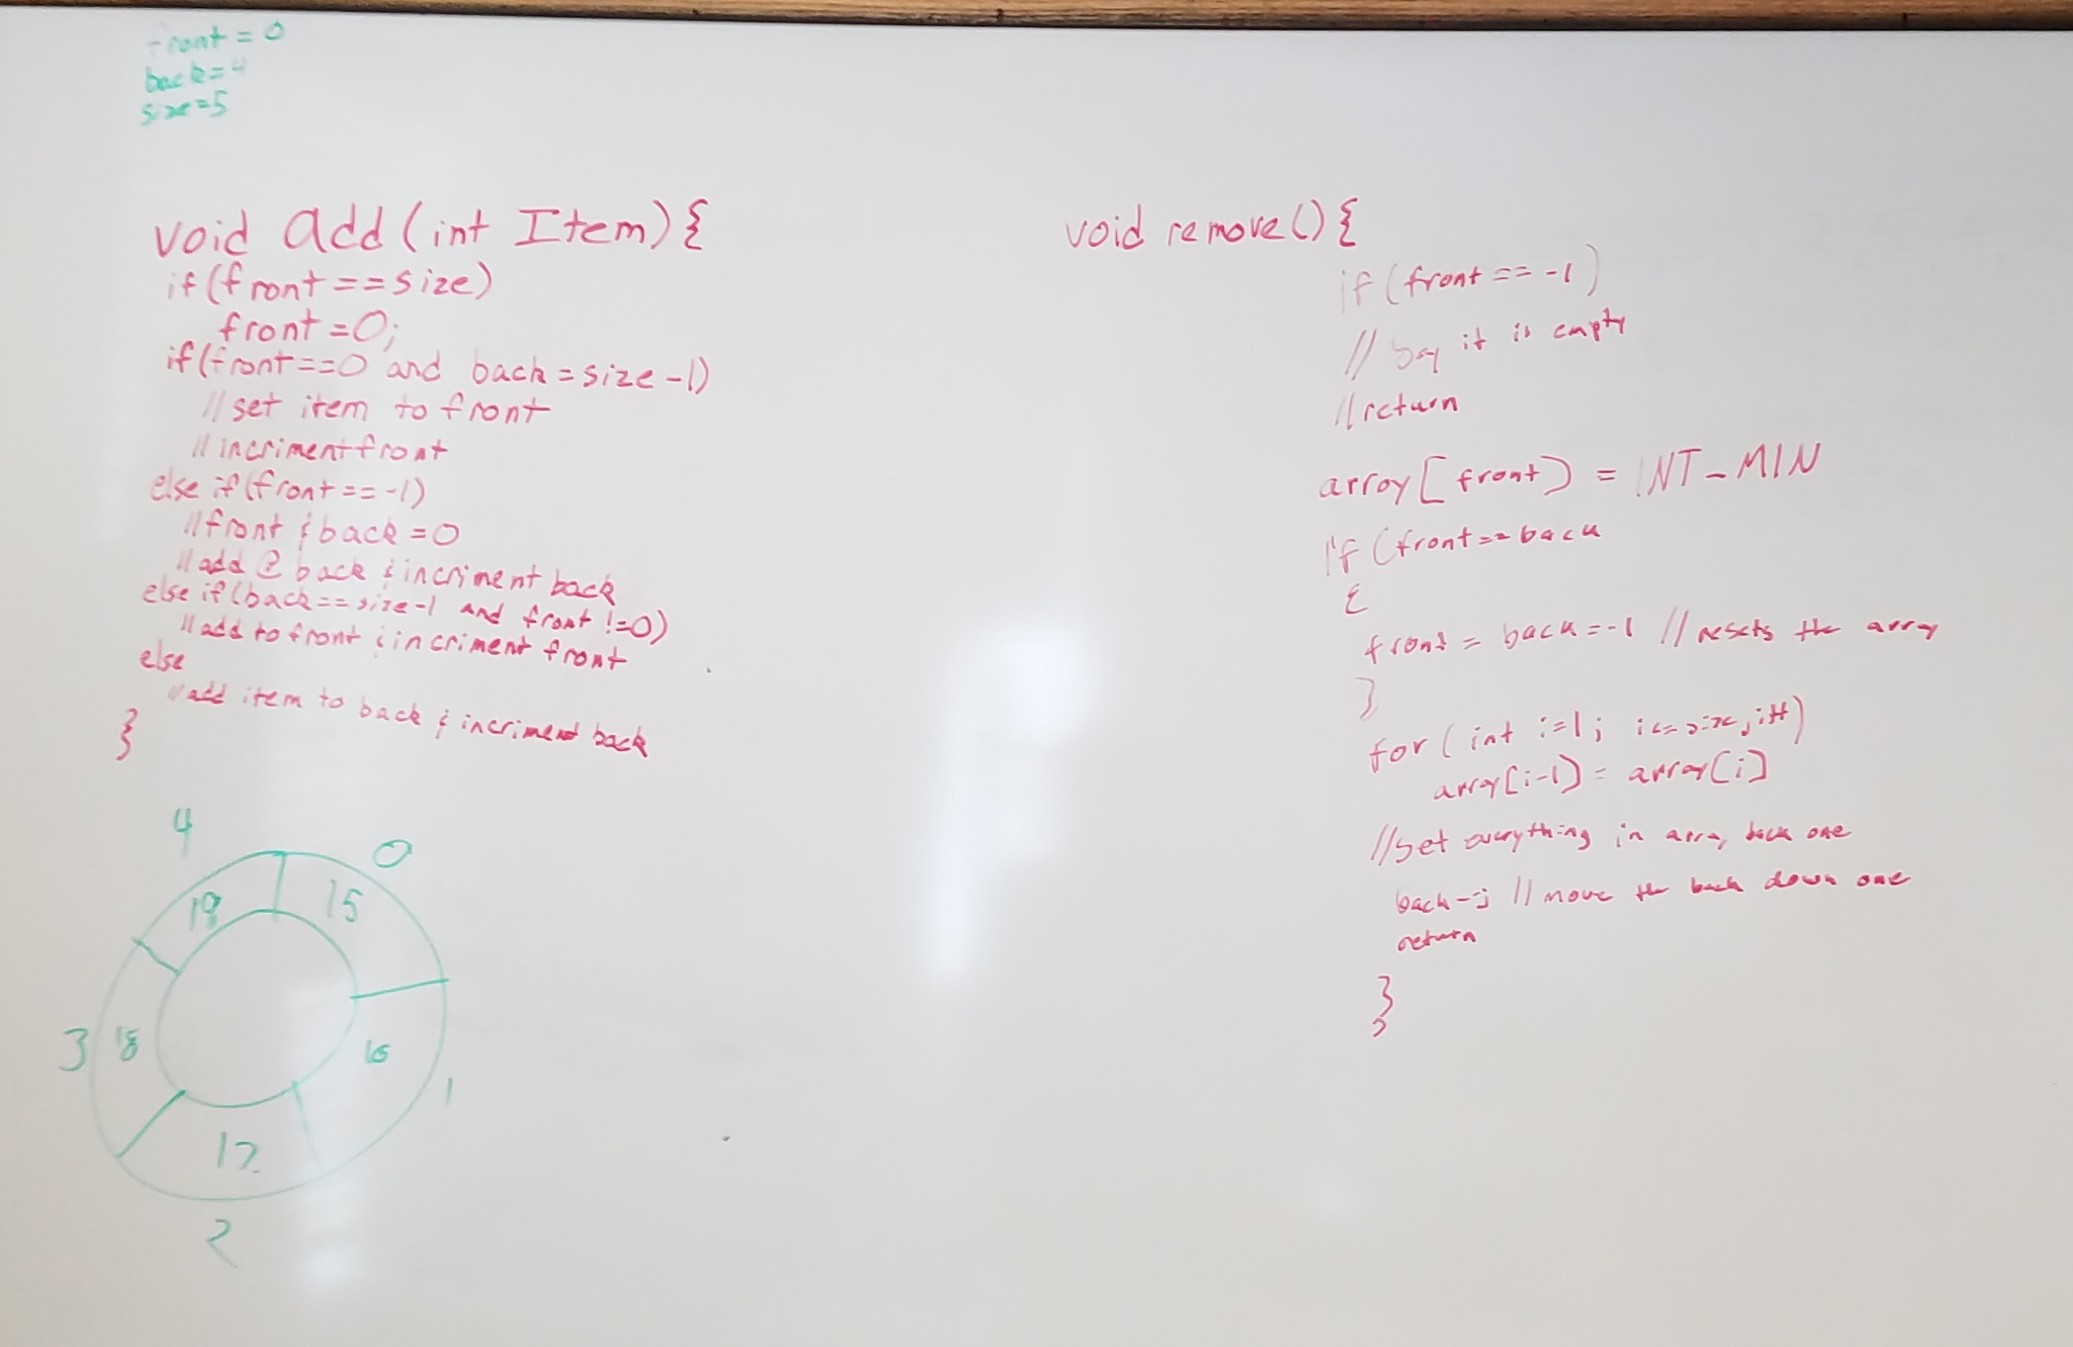 front = 0
back=4
size=5
void add (int Item) {
if (front ==size)
front =0;
if (front==0 and back = size -1)
// set item to front
// incriment front
else if (front == -1)
// front & back =0
// add @ back & incriment back
else if (back== size-1 and front !=0)
// add to front & incriment front
else
// add item to back & incriment back
}
4
0
19
15
3
18
16
1
17
2
void remove() {
if (front == -1)
// Say it is empty
// return
array [front] = INT_MIN
if (front == back
{
front = back = -1 // resets the array
}
for (int i=1; i<= size, i++)
array[i-1] = array[i]
// Set everything in array back one
back--; // move the back down one
return
}